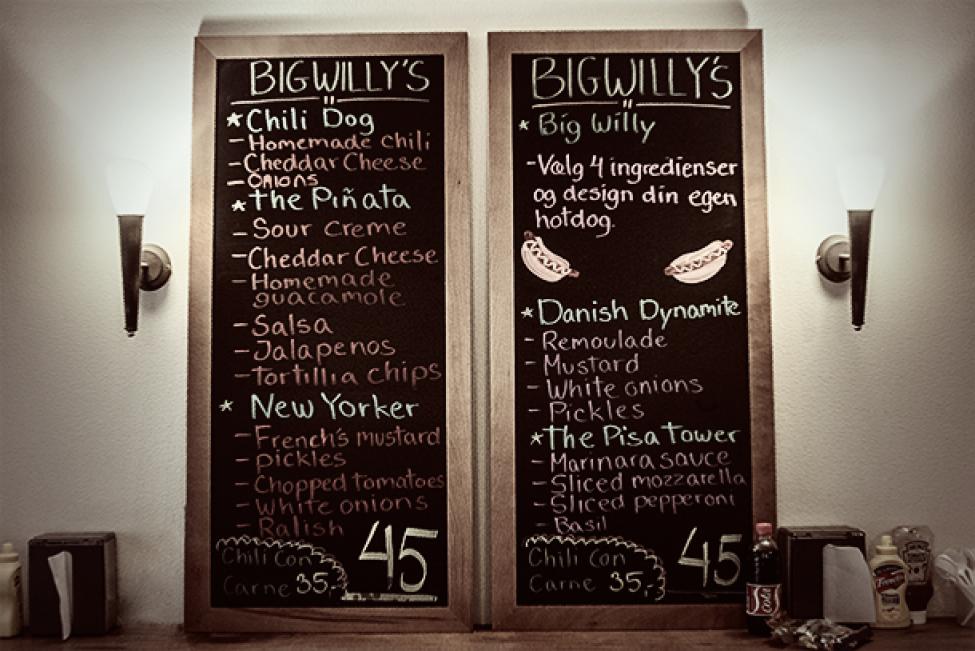 BIGWILLY'S
* Chili Dog
- Homemade chili
- Cheddar Cheese
- Onions
* The Piñata
- Sour creme
- Cheddar Cheese
- Homemade
guacamole
- Salsa
- Jalapenos
- Tortillia chips
* New Yorker
- French's mustard
- pickles
- Chopped tomatoes
- White onions
- Ralish
Chili Con
Carne 35,-
45
BIGWILLY'S
* Big Willy
- Vælg 4 ingredienser
og design din egen
hotdog.
* Danish Dynamite
- Remoulade
- Mustard
- White onions
- Pickles
* The Pisa Tower
- Marinara sauce
- Sliced mozzarella
- Sliced pepperoni
- Basil
Chili Con
Carne 35,-
45